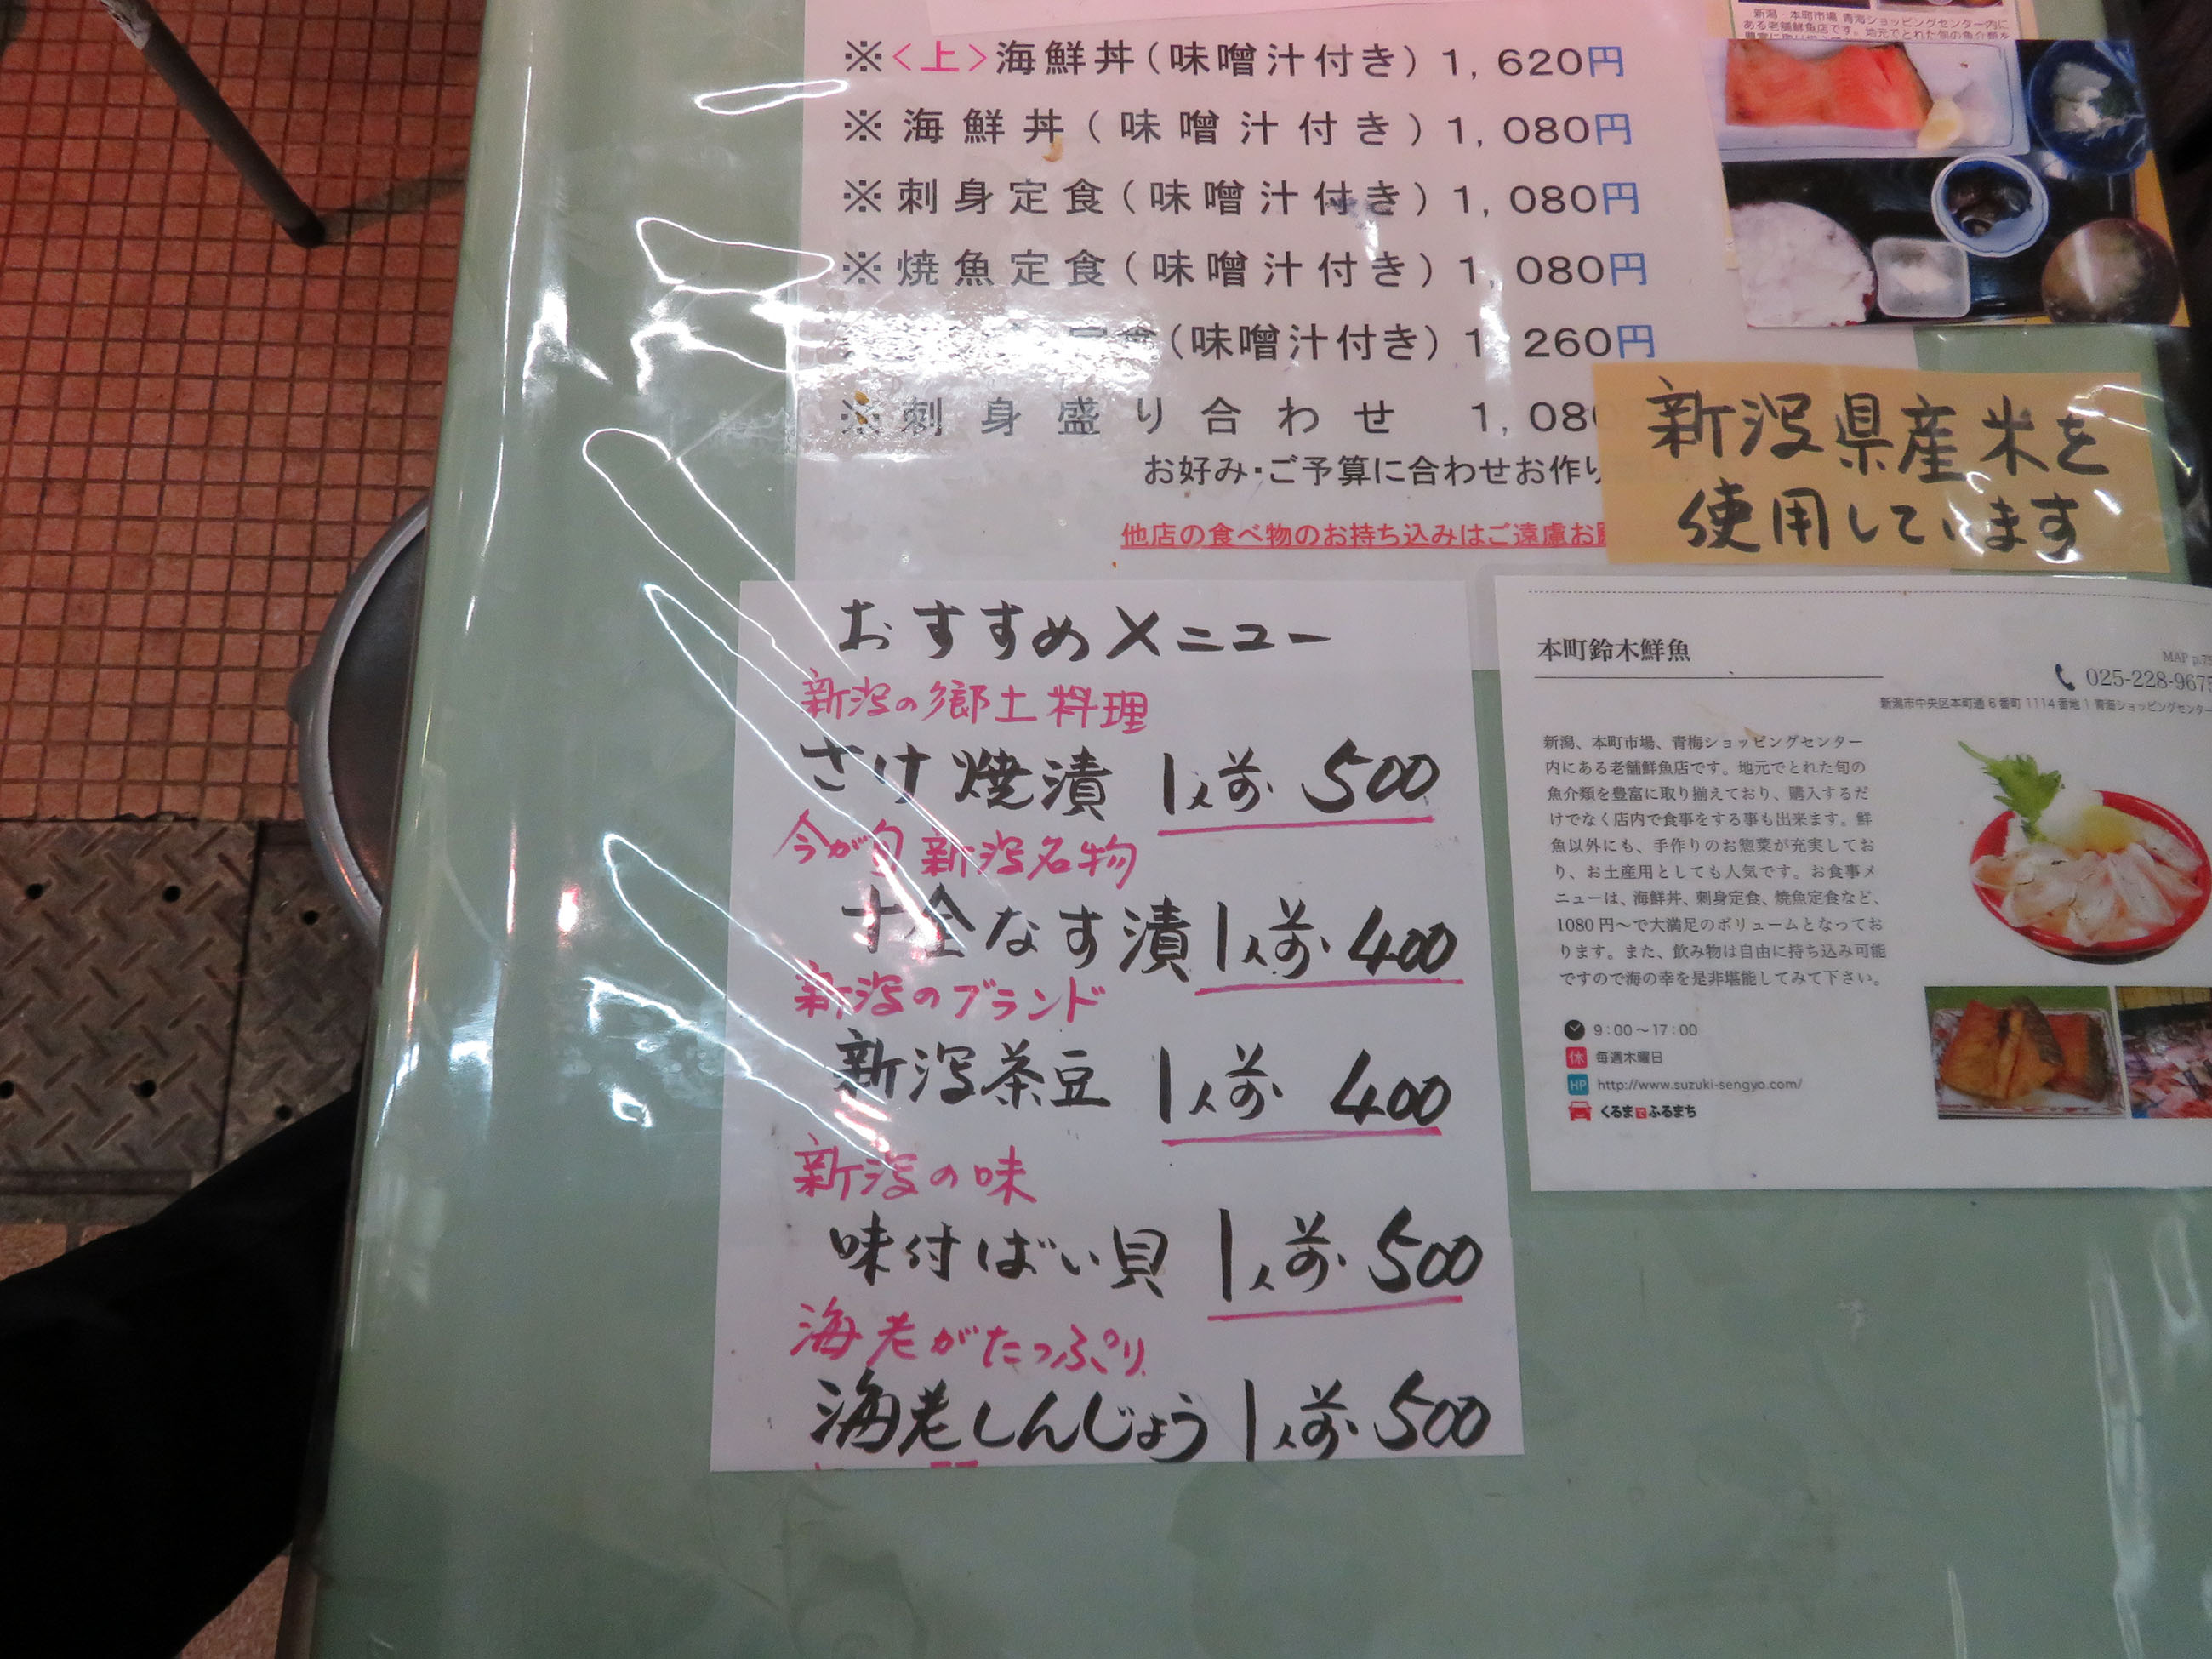 ※<上>海鮮丼(味噌汁付き) 1,620円
※海鮮丼(味噌汁付き) 1,080円
※刺身定食(味噌汁付き) 1,080円
※焼魚定食(味噌汁付き) 1,080円
定食(味噌汁付き) 1,260円
※刺身盛り合わせ 1,080
お好み・ご予算に合わせお作り
他店の食べ物のお持ち込みはご遠慮お願
新潟・本町市場 青海ショッピングセンター内に
ある老舗鮮魚店です。地元でとれた旬の魚介類を
新潟県産米を
使用しています
おすすめメニュー
新潟の郷土料理
さけ焼漬 1人前 500
今が旬 新潟名物
十全なす漬 1人前 400
新潟のブランド
新潟茶豆 1人前 400
新潟の味
味付ばい貝 1人前 500
海老がたっぷり
海老しんじょう 1人前 500
本町鈴木鮮魚
MAP p.7
025-228-967
新潟市中央区本町通6番町1114番地1 青海ショッピングセンター
新潟、本町市場、青梅ショッピングセンター
内にある老舗鮮魚店です。地元でとれた旬の
魚介類を豊富に取り揃えており、購入するだ
けでなく店内で食事をする事も出来ます。鮮
魚以外にも、手作りのお惣菜が充実してお
り、お土産用としても人気です。お食事メ
ニューは、海鮮丼、刺身定食、焼魚定食など、
1080円〜で大満足のボリュームとなってお
ります。また、飲み物は自由に持ち込み可能
ですので海の幸を是非堪能してみて下さい。
9:00〜17:00
休 毎週木曜日
HP http://www.suzuki-sengyo.com/
くるまでふるまち